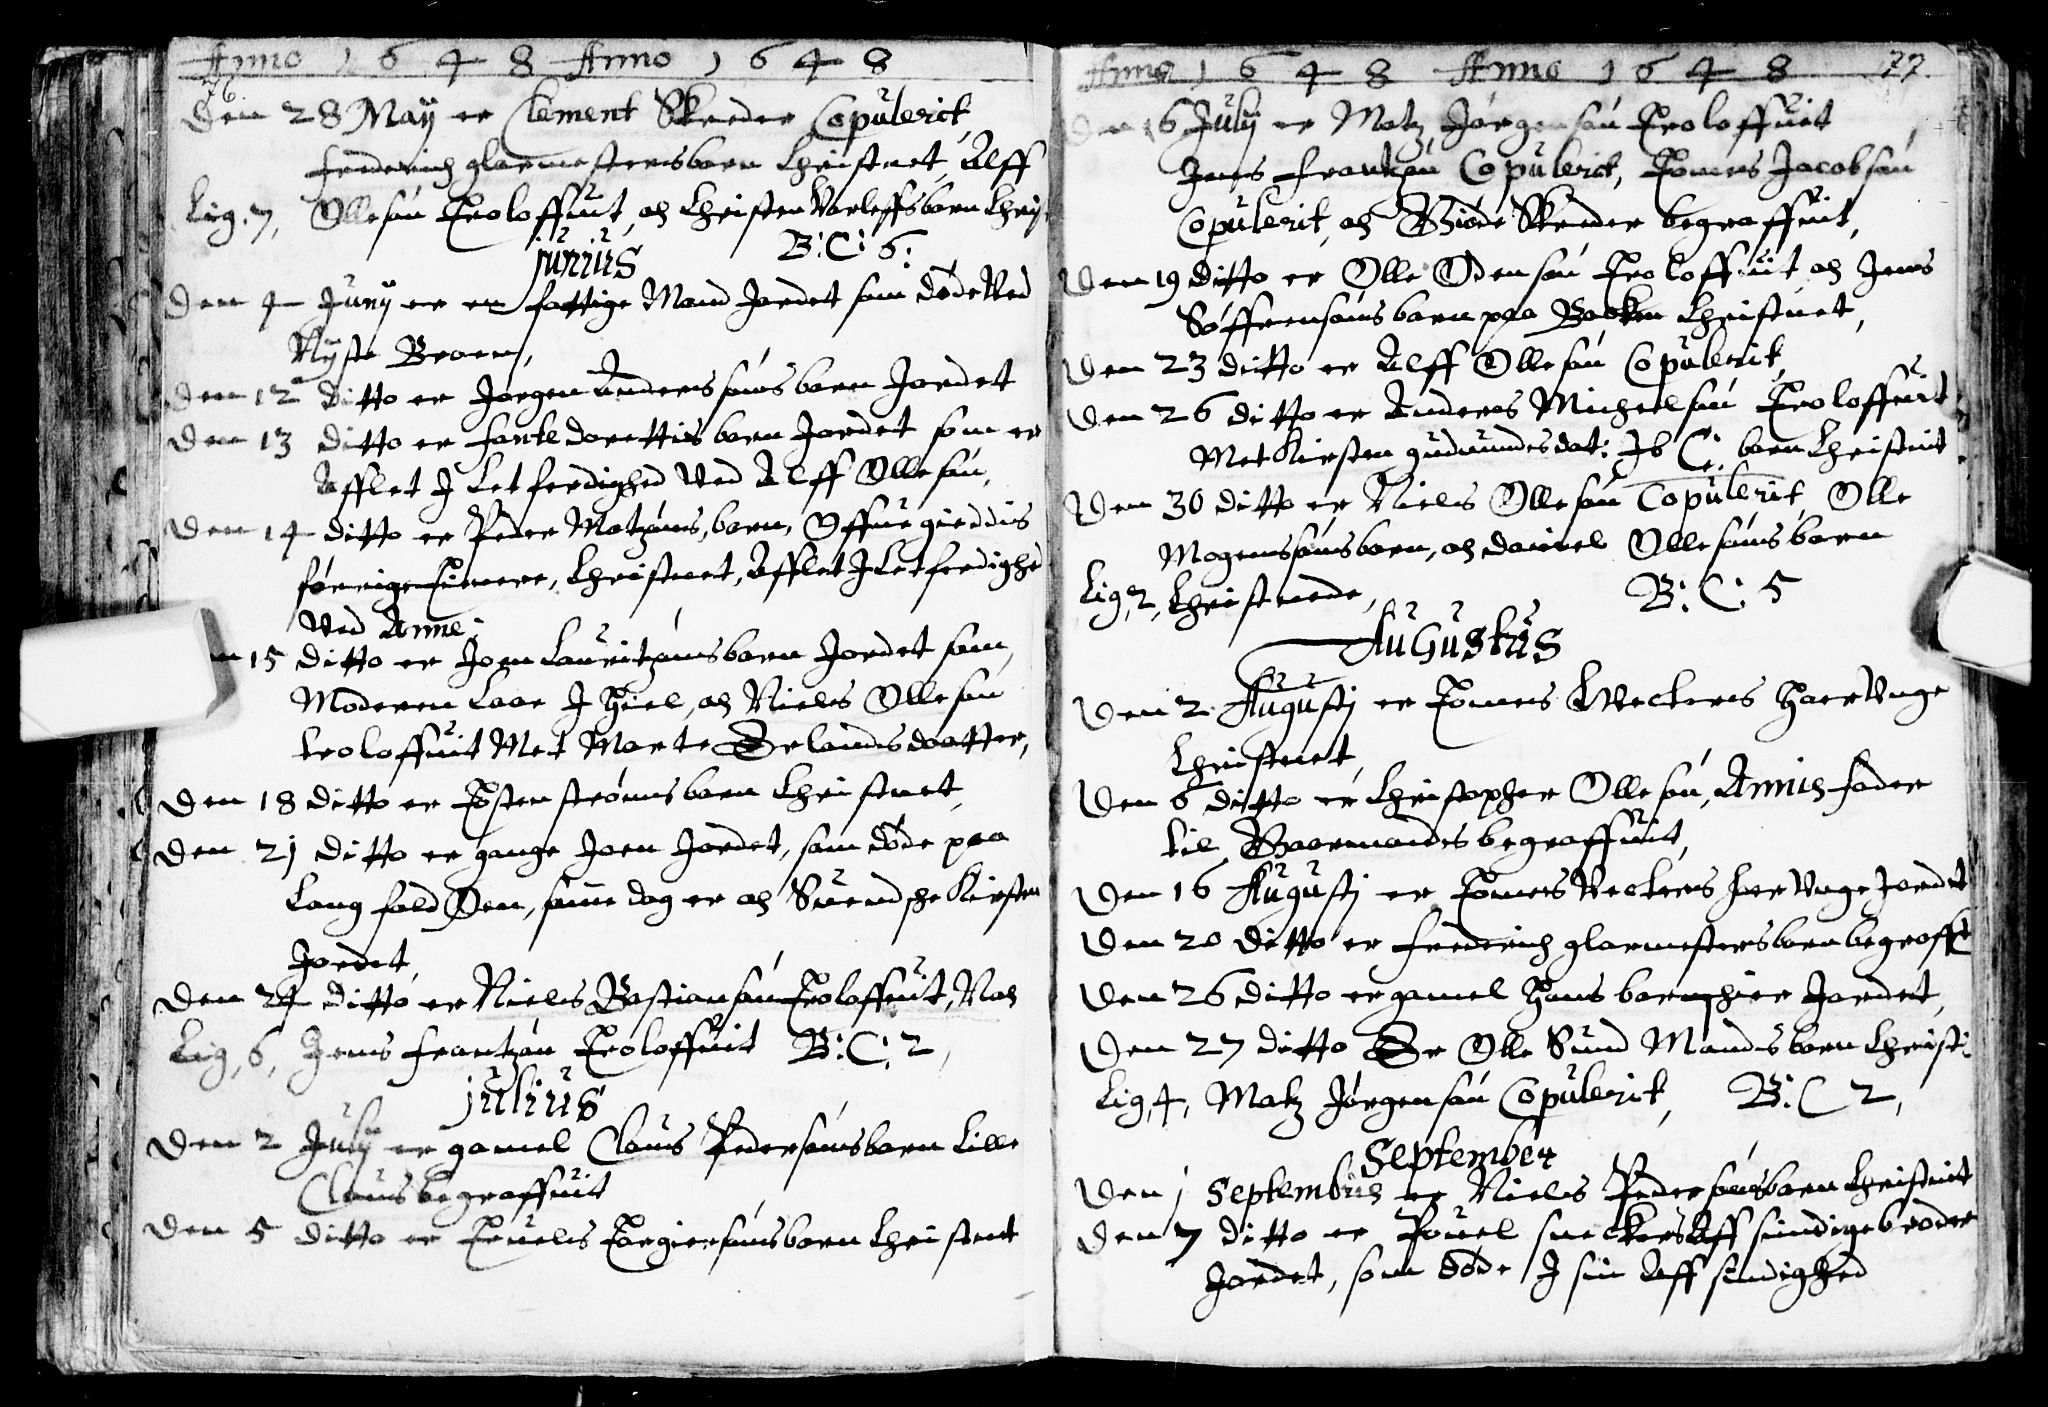 Anno 1648 Anno 1648
76.
Den 28 Maij er Clement Skreder Copulerit,
Frederich glarmestersbarn Christnet, Alff
Lig. 7, Ollesøn Troloffuit, och Christen Varleffsbarn Chri-
junius B: C: 6:
Den 4 Junij er en fattige Mand Jordet som døde Ved
Nyste Broen,
Den 12 ditto er Jørgen Anderssøns barn Jordet
Den 13 ditto er Fante dorettis barn Jordet som er
Afflet J Letferdighed Ved Alff Ollesøn,
Den 14 ditto er Peder Matzøns, barn, Offue gieddis
førrige Tienere, Christnet, Afflet J Letferdighed
Ved Anne;
15 ditto er Joen Lauritzønsbarn Jordet som,
Moderen Laae J Hiel, och Niels Ollesøn
troloffuit Met Marte Erlandsdaatter,
Den 18 ditto er Tosten strømsbarn Christnet,
Den 21 ditto er gange Joen Jordet, som døde paa
Lang fald Øen, samme dag er och Suendsche Kirsten
Jordet,
Den 24 ditto er Niels Bastiansøn Troloffuit, Noch
Lig, 6, Jens Frantzøn Troloffuit B: C: 2,
julius
Den 2 July er gamel Claus Pedersønsbarn Lille
Claus begraffuit
Den 5 ditto er Truels Torgiersønsbarn Christnet
Anno 1648 Anno 1648 77.
Den 16 Julij er Matz Jørgensøn Troloffuit
Jens Frantzøn Copulerit, Tomes Jacobsøn
Copulerit, och Giøde Skreder begraffuit,
Den 19 ditto er Olle Odensøn Troloffuit och Jens
Søffrensøns barn paa Backen Christnet,
Den 23 ditto er Alff Ollesøn Copulerit,
Den 26 ditto er Anders Michelsøn Troloffuit
Met Kirsten gudmundsdat: Jb C: barn Christnit
Den 30 ditto er Niels Ollesøn Copulerit, Olle
Mogenssønsbarn, och daniel Ollesønsbarn
Lig, 2, Christnede, B: C: 5
AuGustus
Den 2 Augustj er Tomes Weckers Haer Vnge
Christnet,
Den 6 ditto er Christopher Ollesøn, Annis fader
til Baarmandts begraffuit,
Den 16 Augustj er Tomes Veckers Haer Vnge Jordet
Den 20 ditto er Frederich glarmestersbarn begraff:
Den 26 ditto er gamel Hans barn hier Jordet,
Den 27 ditto Er Olle Sund Mandsbarn Christ:
Lig, 4, Matz Jørgensøn Copulerit, B: C 2,
September
Den 1 Septembris er Niels Pedersønsbarn Christnit
Den 7 ditto er Pouel sneckers Aff sindige broder
Jordet, som døde J sin Aff sindighed